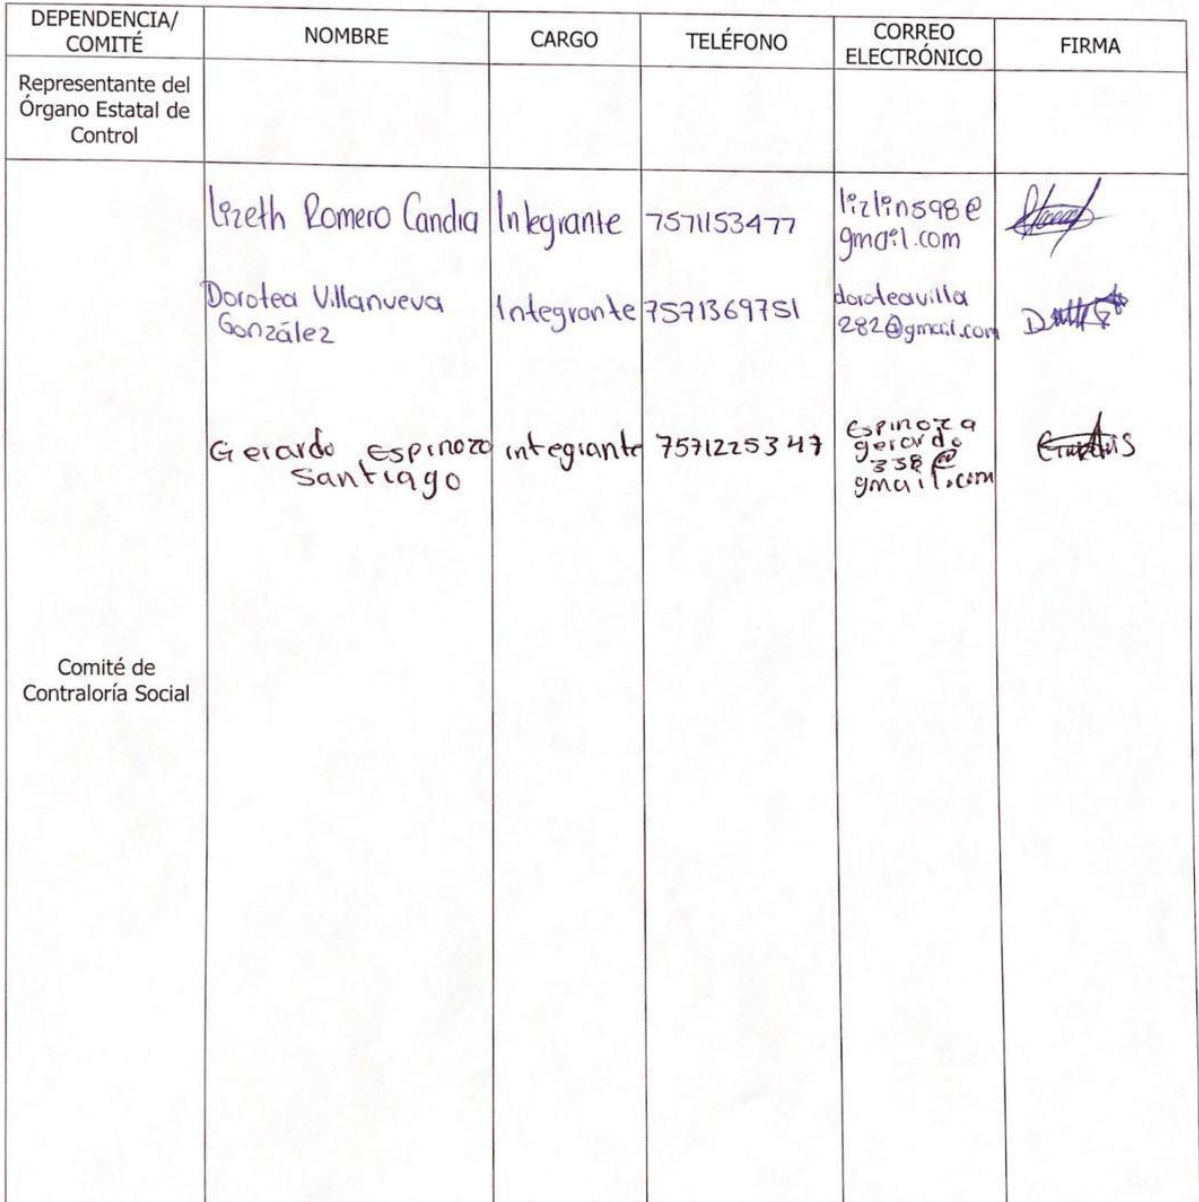 DEPENDENCIA/
COMITÉ
NOMBRE
CARGO
TELÉFONO
CORREO
ELECTRÓNICO
FIRMA
Representante del
Órgano Estatal de
Control
Comité de
Contraloría Social
lizeth Romero Candia
Integrante
7571153477
lizlins98@
gmail.com
Dorotea Villanueva
González
Integrante
7571369751
doroteavilla
282@gmail.com
Gerardo Espinoza
Santiago
integrante
7571225347
Espinoza
gerardo
338@
gmail.com